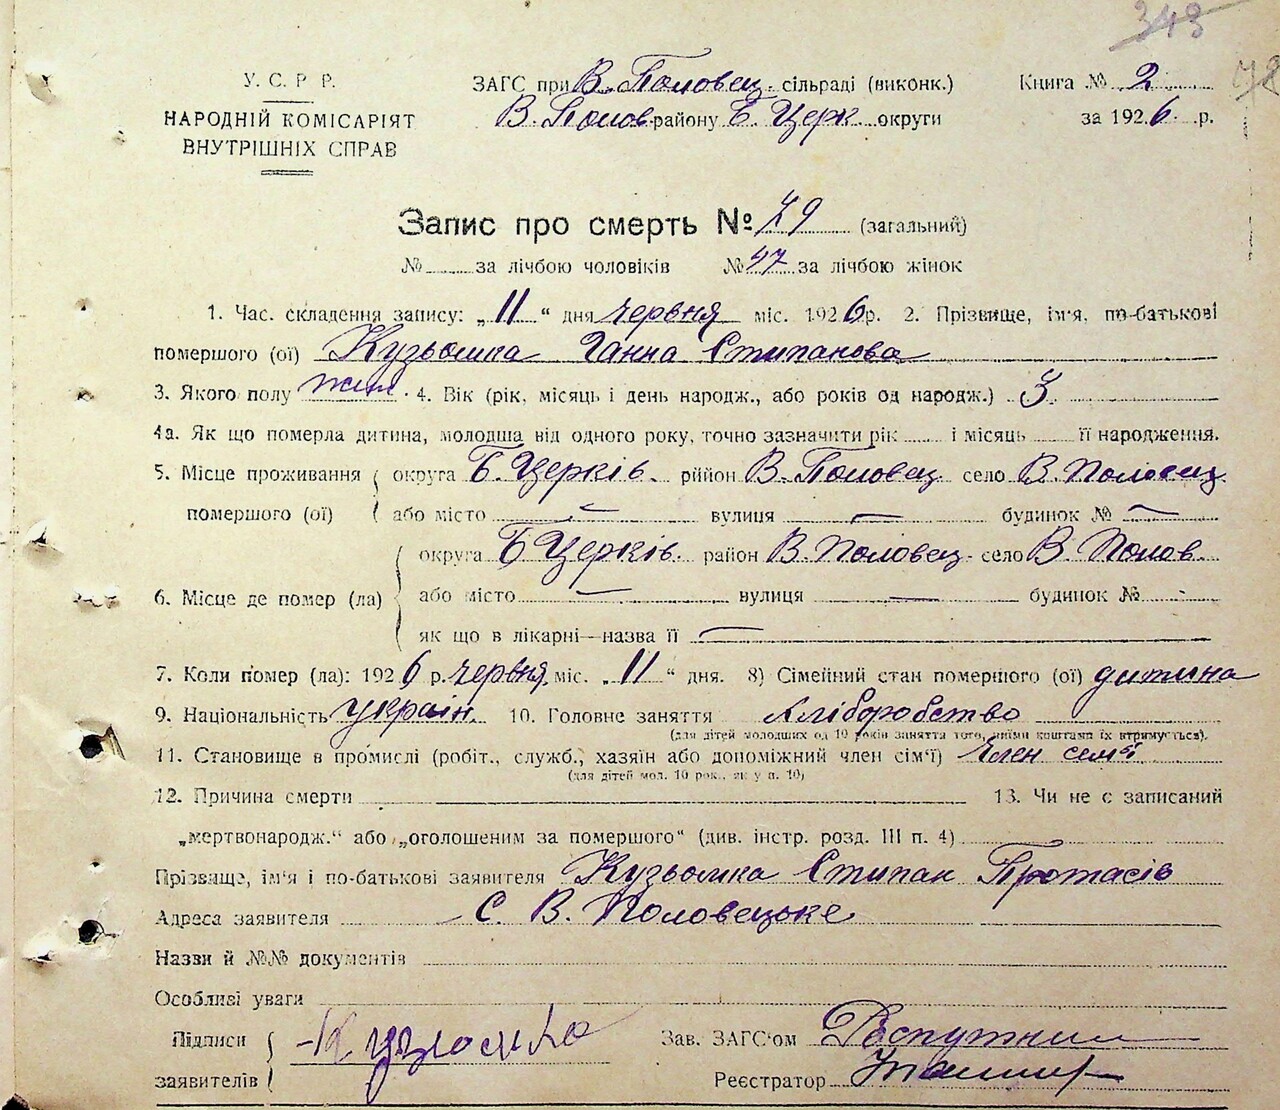 348
78
У. С. Р. Р.
НАРОДНІЙ КОМІСАРІЯТ
ВНУТРІШНІХ СПРАВ
ЗАГС при В. Половец. сільраді (виконк.)
В. Полов. району Б. Церк. округи
Книга № 2
за 1926 р.
Запис про смерть № 79 (загальний)
№ за лічбою чоловіків № 47 за лічбою жінок
1. Час складення запису: „11“ дня червня міс. 1926 р. 2. Прізвище, ім'я, по-батькові
помершого (ої) Кузьомка Ганна Стипанова
3. Якого полу жін. 4. Вік (рік, місяць і день народж., або років од народж.) 3
4а. Як що померла дитина, молодша від одного року, точно зазначити рік і місяць її народження.
5. Місце проживання округа Б. Церків. рийон В. Половец село В. Половец
помершого (ої) або місто — вулиця — будинок № —
округа Б Церків. район В. Половец. село В. Полов.
6. Місце де помер (ла) або місто — вулиця — будинок № -
як що в лікарні—назва її —
7. Коли помер (ла): 1926 р. червня міс. „11“ дня. 8) Сімейний стан помершого (ої) дитина
9. Національність україн. 10. Головне заняття Хліборобство
(для дітей молодших од 10 років заняття того, чиїми коштами їх втримується).
11. Становище в промислі (робіт., служб., хазяїн або допоміжний член сім'ї) Член семї
(для дітей мол. 10 рок., як у п. 10)
12. Причина смерти 13. Чи не є записаний
„мертвонародж.“ або „оголошеним за помершого“ (див. інстр. розд. III п. 4)
Прізвище, ім'я і по-батькові заявителя Кузьомка Стипан Протасів
Адреса заявителя С. В. Половецьке
Назви й №№ документів
Особливі уваги
Підписи
заявителів
Зав. ЗАГС'ом Распутний
Реєстратор